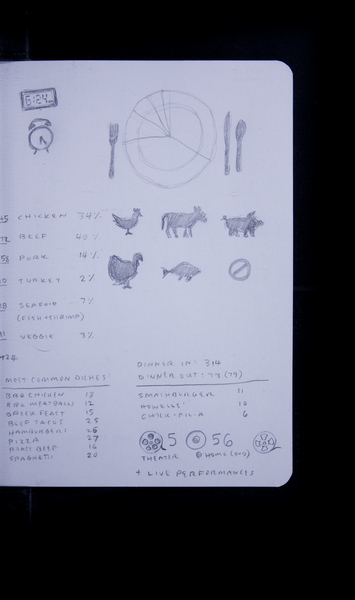 6:24
CHICKEN 34%
BEEF 40%
PORK 14%
TURKEY 2%
SEAFOOD 7%
(FISH+SHRIMP)
VEGGIE 3%
DINNER IN: 314
DINNER OUT: 79 (79)
MOST COMMON DISHES
BBQ CHICKEN 13
BBQ MEATBALLS 12
GREEK FEAST 15
BEEF TACOS 25
HAMBURGERS 26
PIZZA 27
ROAST BEEF 16
SPAGHETTI 20
SMASHBURGER 11
10
CHICK-FIL-A 6
5 56
THEATER @ HOME (DVD)
4 LIVE PERFORMANCES